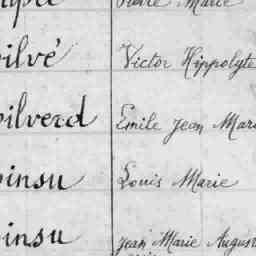 Pierre Marie
ilvé Victor Hippolyte
ilverd Emile Jean Mari
insu Louis Marie
insu Jean Marie August